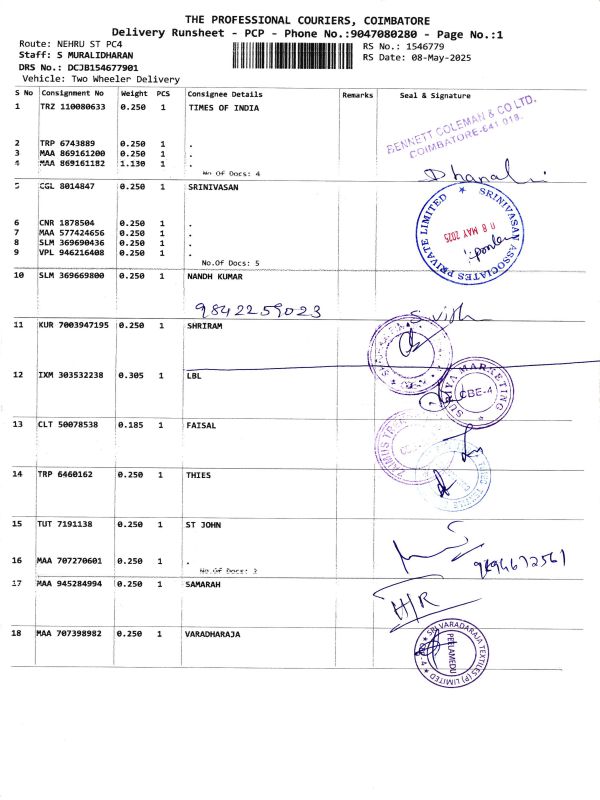 THE PROFESSIONAL COURIERS, COIMBATORE
Delivery Runsheet - PCP - Phone No.:9047080280 - Page No.:1
Route: NEHRU ST PC4 RS No.: 1546779
Staff: S MURALIDHARAN RS Date: 08-May-2025
DRS No.: DCJB154677901
Vehicle: Two Wheeler Delivery
S No Consignment No Weight PCS Consignee Details Remarks Seal & Signature
1 TRZ 110080633 0.250 1 TIMES OF INDIA
BENNETT COLEMAN & CO LTD.
COIMBATORE-641 018.
2 TRP 6743889 0.250 1 .
3 MAA 869161200 0.250 1 .
4 MAA 869161182 1.130 1 .
No Of Docs: 4
5 CGL 8014847 0.250 1 SRINIVASAN
SRINIVASAN ASSOCIATES PRIVATE LIMITED
08 MAY 2025
6 CNR 1878504 0.250 1 .
7 MAA 577424656 0.250 1 .
8 SLM 369690436 0.250 1 .
9 VPL 946216408 0.250 1 .
No.Of Docs: 5
10 SLM 369669800 0.250 1 NANDH KUMAR
9842259023
11 KUR 7003947195 0.250 1 SHRIRAM
12 IXM 303532238 0.305 1 LBL
MARKETING
CBE-4
13 CLT 50078538 0.185 1 FAISAL
14 TRP 6460162 0.250 1 THIES
15 TUT 7191138 0.250 1 ST JOHN
16 MAA 707270601 0.250 1 .
No.Of Docs: 2
9894672561
17 MAA 945284994 0.250 1 SAMARAH
H/R
18 MAA 707398982 0.250 1 VARADHARAJA
SRI VARADARAJA TEXTILES (P) LIMITED
PEELAMEDU